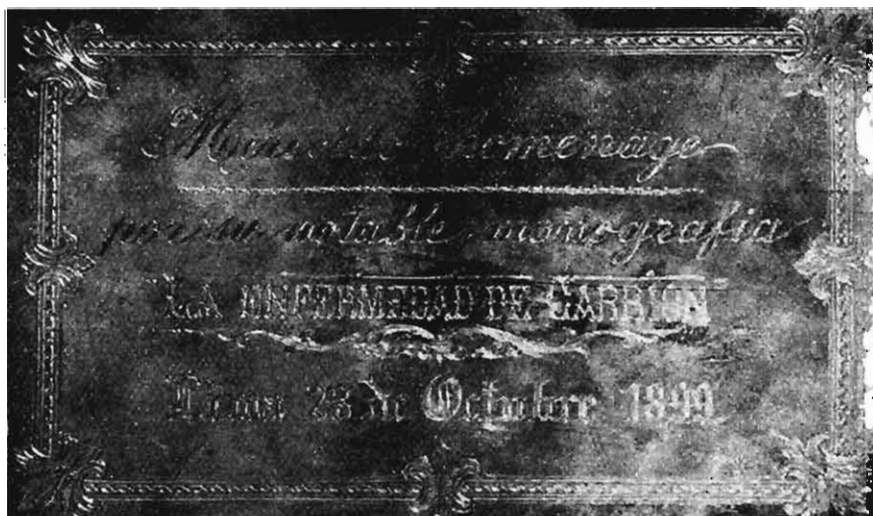 homenage
por su notable monografia
LA ENFERMEDAD DE CARRIÓN
Lima 28 de Octubre 1899